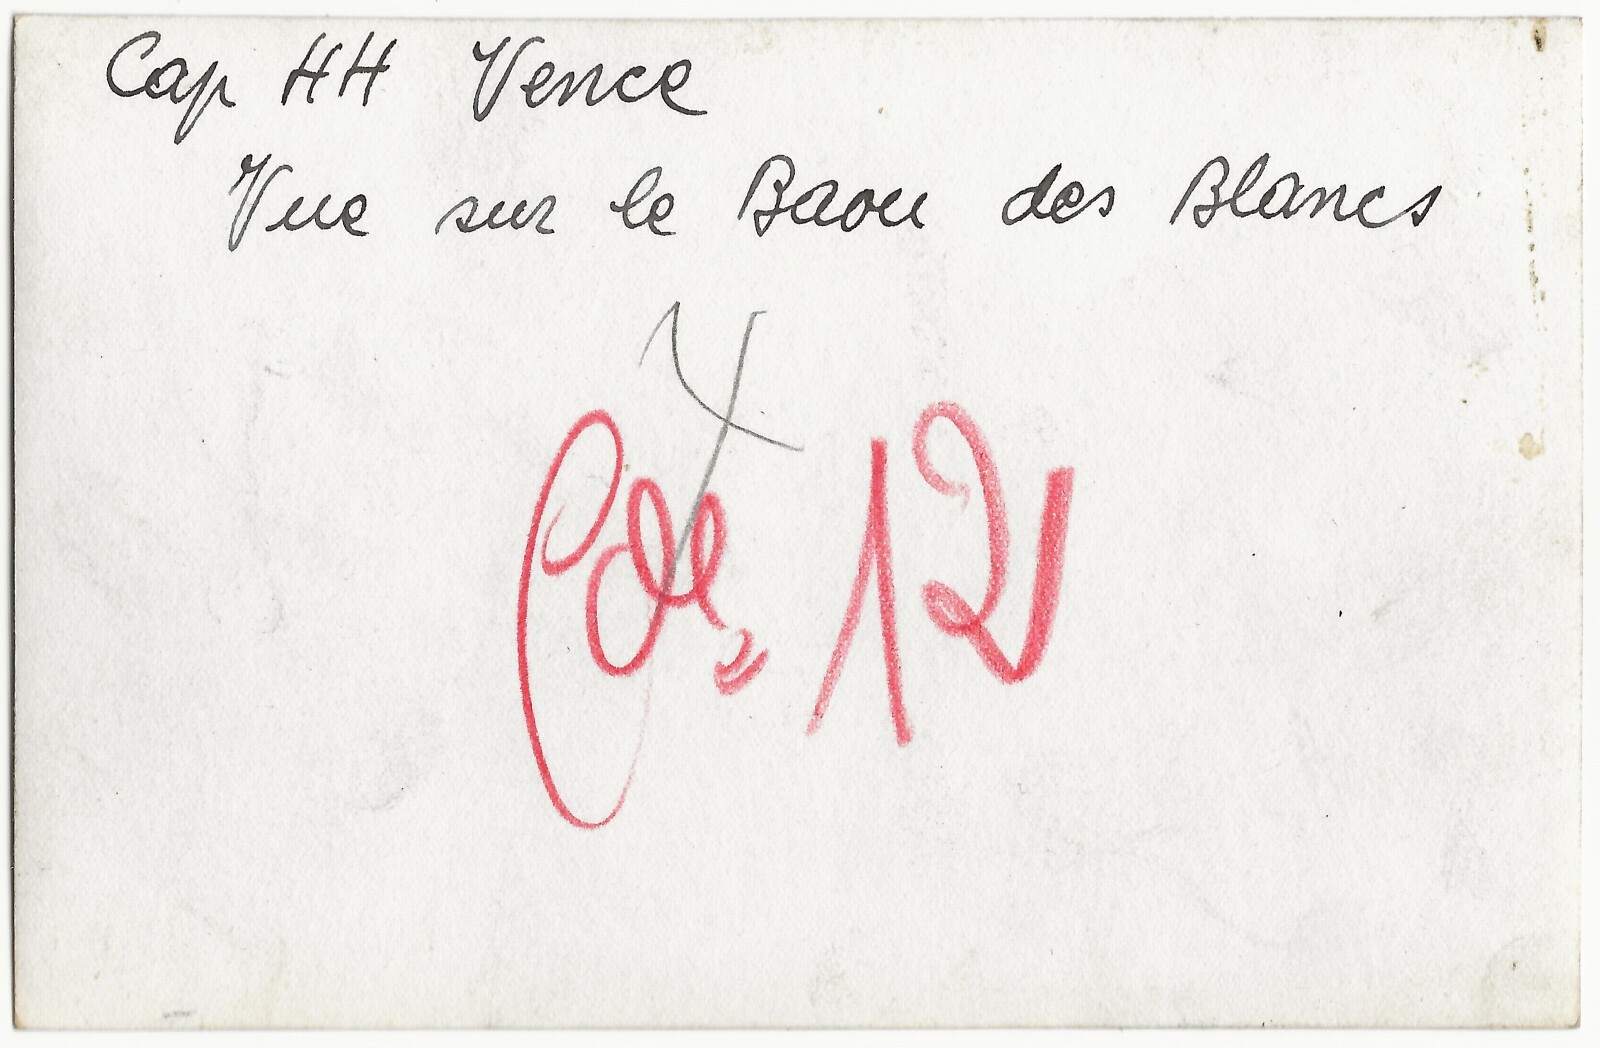 Cap HH Vence
Vue sur le Baou des Blancs
12